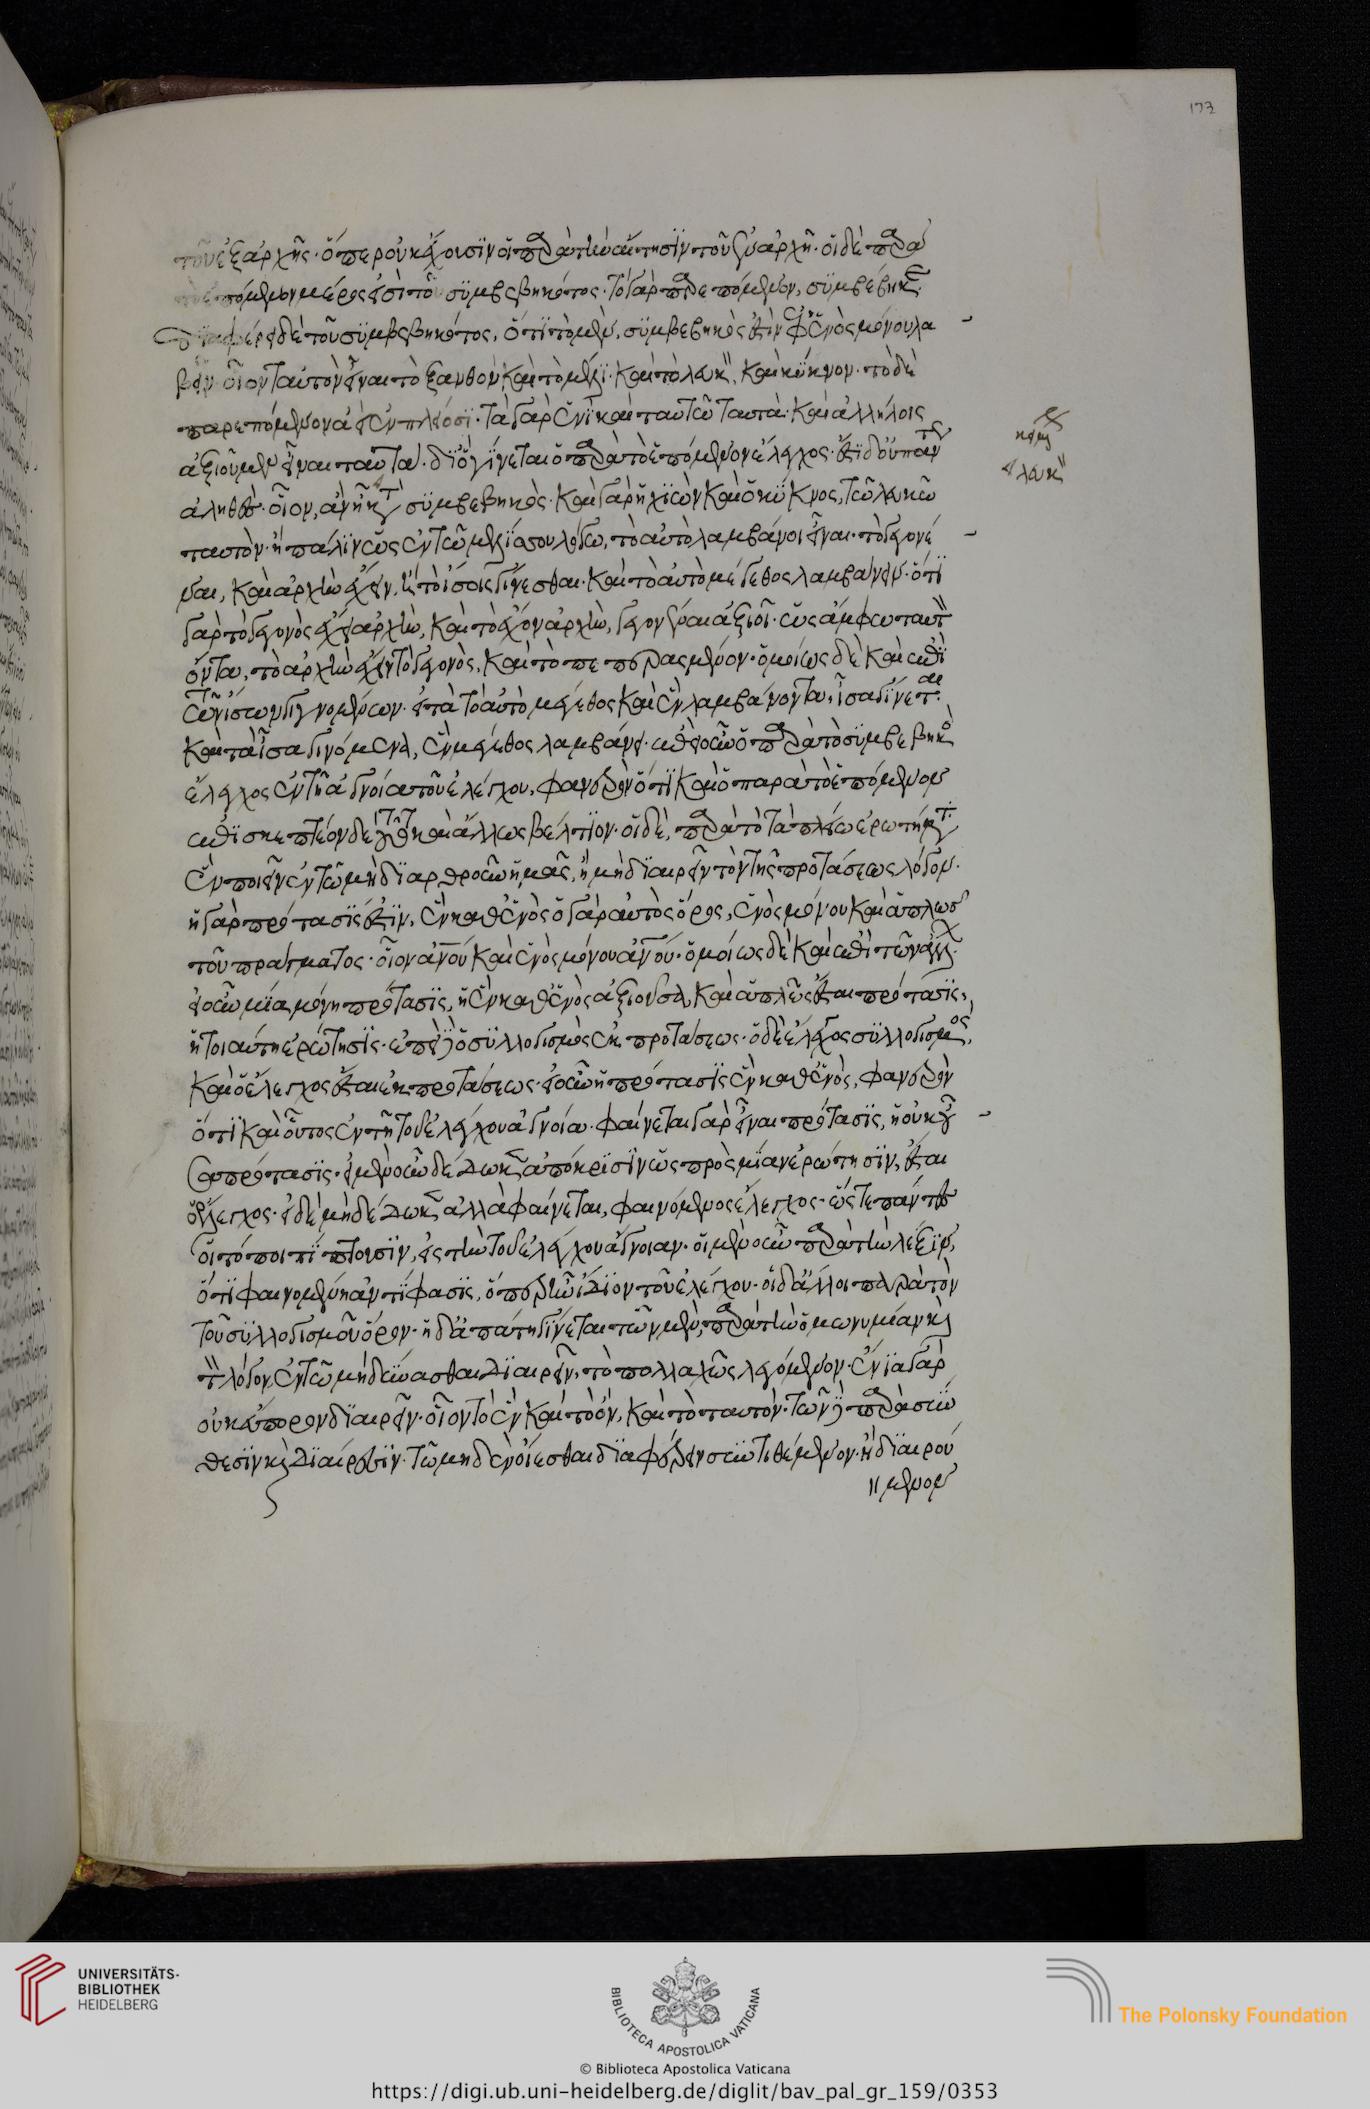 177
τοῦ ἐξ ἀρχῆς· ὅπερ οὐκ ἔχουσιν οἱ παρὰ τὴν αἴτησιν τοῦ ἐν ἀρχῇ· οἱ δὲ παρὰ
τὸ ἑπόμενον μέρος εἰσὶ τοῦ συμβεβηκότος· τὸ γὰρ παρεπόμενον, συμβέβηκε
διαφέρει δὲ τοῦ συμβεβηκότος, ὅτι τὸ μὲν, συμβεβηκὸς ἔστιν ἐφ' ἑνὸς μόνου λα
βεῖν· οἷον ταὐτὸν εἶναι τὸ ξανθὸν καὶ τὸ μέλι· καὶ τὸ λευκὸν, καὶ κύκνον· τὸ δὲ
παρεπόμενον ἀεὶ ἐν πλείοσι· τὰ γὰρ ἑνὶ καὶ ταὐτῷ ταὐτὰ· καὶ ἀλλήλοις
ἀξιοῦμεν εἶναι ταὐτά· διὸ γίνεται ὁ παρὰ τὸ ἑπόμενον ἔλεγχος· ἔστι δ' οὐ πάντως
ἀληθὲς· οἷον, ἂν ᾖ κατὰ συμβεβηκὸς· καὶ γὰρ ἡ χιὼν καὶ ὁ κύκνος, τῷ λευκῷ
ταυτόν· ἢ πάλιν ὡς ἐν τῷ μελίσσου λόγω, τὸ αὐτὸ λαμβάνει εἶναι· τὸ γεγονέ
ναι, καὶ ἀρχὴν ἔχειν, ἢ τὸ ἴσοις γίνεσθαι· καὶ τὸ αὐτὸ μέγεθος λαμβάνειν· ὅτι
γὰρ τὸ γεγονὸς ἔχει ἀρχὴν, καὶ τὸ ἔχον ἀρχὴν, γεγονέναι ἀξιοῖ· ὡς ἄμφω ταυτὰ
ὄντα, τὸ ἀρχὴν ἔχειν τὸ γεγονὸς, καὶ τὸ πεπερασμένον· ὁμοίως δὲ καὶ ἐπὶ
τῶν ἴσων γινομένων· εἰ τὰ τὸ αὐτὸ μέγεθος καὶ ἓν λαμβάνοντα, ἴσα γίνεται·
καὶ τὰ ἴσα γινόμενα, ἓν μέγεθος λαμβάνει· ἐπεὶ οὖν ὁ παρὰ τὸ συμβεβηκὸς
ἔλεγχος ἐν τῇ ἀγνοία τοῦ ἐλέγχου, φανερὸν ὅτι καὶ ὁ παρὰ τὸ ἑπόμενον
ἐπισκεπτέον δὲ τοῦτο καὶ ἄλλως βέλτιον· οἱ δὲ, παρὰ τὸ τὰ πλείω ἐρωτήματα
ἓν ποιεῖν ἐν τῷ μὴ διαρθροῦν ἡμᾶς, ἢ μὴ διαιρεῖν τὸν τῆς προτάσεως λόγον·
ἡ γὰρ πρότασίς ἐστιν, ἓν καθ' ἑνός· ὁ γὰρ αὐτὸς ὅρος, ἑνὸς μόνου καὶ ἁπλῶς
τοῦ πράγματος· οἷον ἀνου καὶ ἑνὸς μόνου ἀνου· ὁμοίως δὲ καὶ ἐπὶ τῶν ἄλλων·
εἰ οὖν μία μόνη πρότασις, ἡ ἓν καθ' ἑνὸς ἀξιοῦσα, καὶ ἁπλῶς ἔσται πρότασις,
ἡ τοιαύτη ἐρώτησις· ἐπεὶ δ' ὁ συλλογισμὸς ἐκ προτάσεως· ὁ δὲ ἔλεγχος συλλογισμὸς,
καὶ ὁ ἔλεγχος ἔσται ἐκ προτάσεως· εἰ οὖν ἡ πρότασις ἓν καθ' ἑνὸς, φανερὸν
ὅτι καὶ οὗτος ἐν τῇ τοῦ ἐλέγχου ἀγνοία· φαίνεται γὰρ εἶναι πρότασις, ἡ οὐκ οὖ
σα πρότασις· εἰ μὲν οὖν δέδωκεν ἀπόκρισιν ὡς πρὸς μίαν ἐρώτησιν, ἔσται
ὁ ἔλεγχος· εἰ δὲ μὴ δέδωκεν ἀλλὰ φαίνεται, φαινόμενος ἔλεγχος· ὥστε πάντες
οἱ τόποι πίπτουσιν, εἰς τὴν τοῦ ἐλέγχου ἄγνοιαν· οἱ μὲν οὖν παρὰ τὴν λέξιν,
ὅτι φαινομένη ἀντίφασις, ὅπερ ἦν ἴδιον τοῦ ἐλέγχου· οἱ δ' ἄλλοι παρὰ τὸν
τοῦ συλλογισμοῦ ὅρον· ἡ δ' ἀπάτη γίνεται τῶν μὲν, παρὰ τὴν ὁμωνυμίαν καὶ
τὸν λόγον, ἐν τῷ μὴ δύνασθαι διαιρεῖν, τὸ πολλαχῶς λεγόμενον· ἔνια γὰρ
οὐκ εὔπορον διαιρεῖν· οἷον τὸ ἓν καὶ τὸ ὂν, καὶ τὸ ταυτόν· τῶν δὲ παρὰ σύν
θεσιν καὶ διαίρεσιν· τῷ μηδὲν οἴεσθαι διαφέρειν συντιθέμενον· ἢ διαιρού
μενον
ἢ λευκ
UNIVERSITÄTS-
BIBLIOTHEK
HEIDELBERG
BIBLIOTECA APOSTOLICA VATICANA
The Polonsky Foundation
© Biblioteca Apostolica Vaticana
https://digi.ub.uni-heidelberg.de/diglit/bav_pal_gr_159/0353